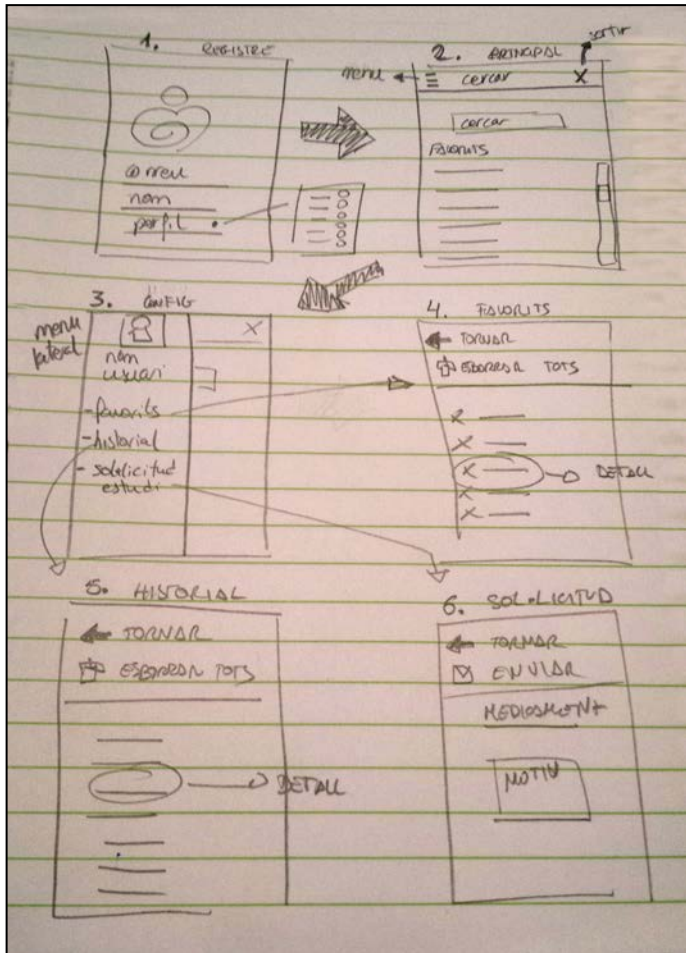 1. REGISTRE
@rreu
nom
perfil
2. PRINCIPAL
sortir
menu
cercar X
cercar
FAVORITS
3. CONFIG
menu
lateral
X
nom
usuari
- favorits
- historial
- sol·licitud
estudi
4. FAVORITS
TORNAR
ESBORRAR TOTS
X
X
X
DETALL
X
X
5. HISTORIAL
TORNAR
ESBORRAR TOTS
DETALL
6. SOL·LICITUD
TORNAR
ENVIAR
MEDICAMENT
MOTIU